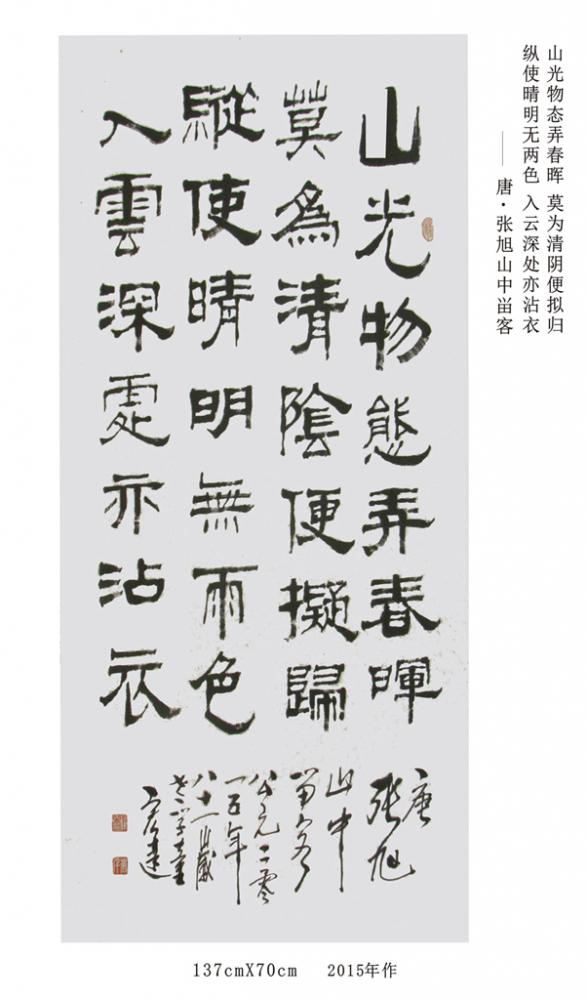 山光物态弄春晖 莫为清阴便拟归
纵使晴明无两色 入云深处亦沾衣
——唐·张旭山中畄客
山光物態弄春暉
莫爲清陰便擬歸
縱使晴明無雨色
入雲深處亦沾衣
唐
張旭
山中
畄客
公元二零
一五年
八十一歲
137cmX70cm 2015年作